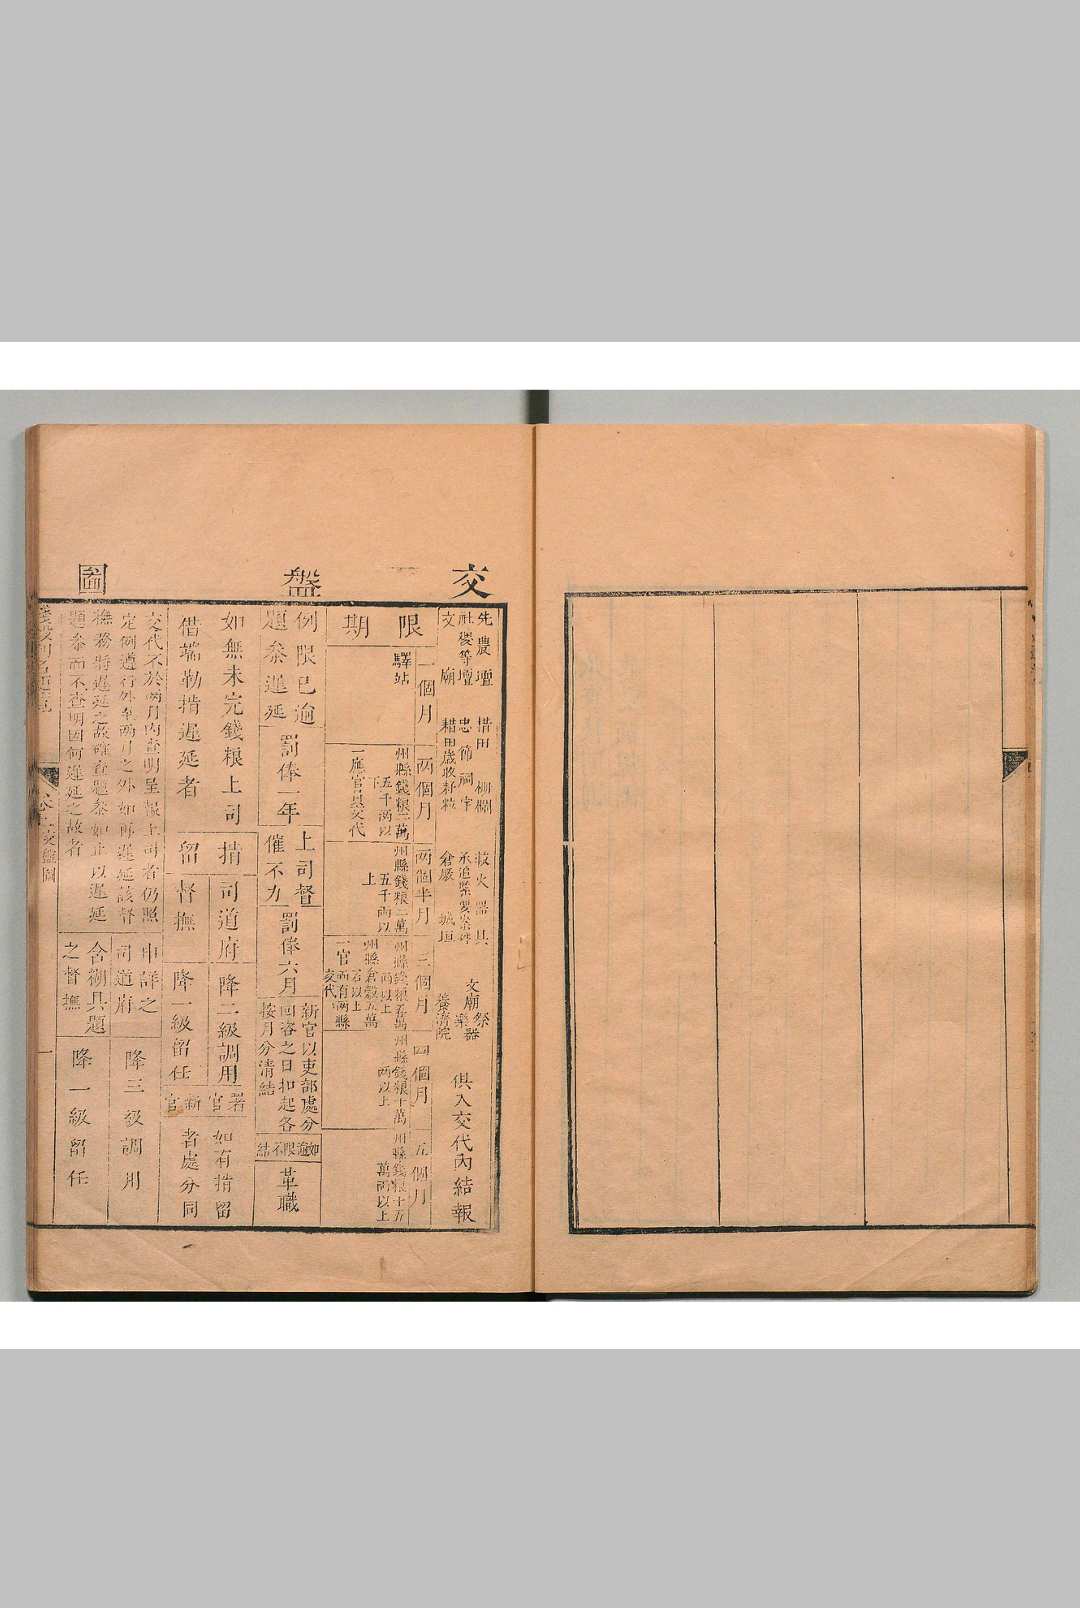 交盤圖
先農壇 耤田 柵欄 救火器具 祭器
社稷等壇 忠節祠宇 承追 文廟樂
文廟 耤田歲收籽粒 倉廒 城垣 養濟院
俱入交代內結報
限期
一個月
驛站
兩個月
州縣錢粮二萬
五千兩以
下
一應官員交代
兩個半月
州縣錢粮二萬
五千兩以
上
三個月
州縣錢粮五萬
兩以上
州縣倉穀五萬
石以上
一官兩縣
交代
四個月
州縣錢粮十萬
兩以上
五個月
州縣錢粮十五
萬兩以上
例限已逾
題叅遲延
罰俸一年
上司督
催不力
罰俸六月
新官以吏部處分
回咨之日扣起各
按月分清結
如逾限不結
革職
如無未完錢粮上司
借端勒掯遲延者
掯留
司道府
督撫
降二級調用
降一級留任
署官
新官
如有掯留
者處分同
交代不於兩月內查明呈報上司者仍照
定例遵行外至兩月之外如再遲延該督
撫務將遲延之故確查題叅如止以遲延
題叅而不查明因何遲延之故者
申詳之
司道府
含糊具題
之督撫
降三級調用
降一級留任
交盤圖
一